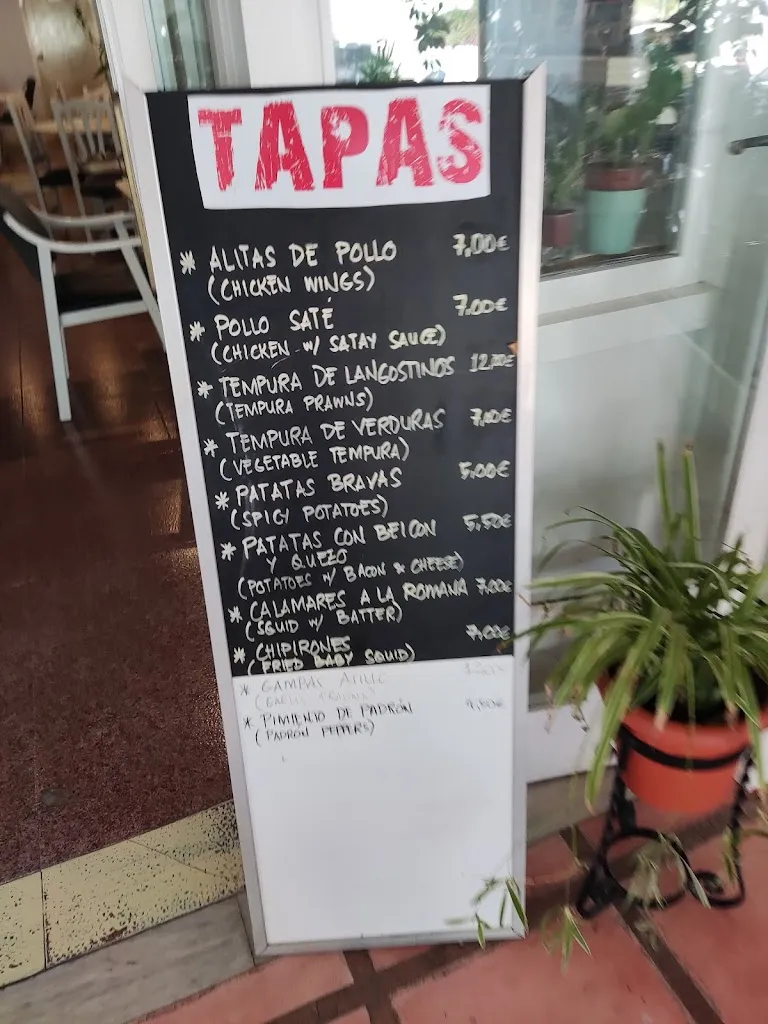 TAPAS
* ALITAS DE POLLO 7,00€
(CHICKEN WINGS)
* POLLO SATÉ 7,00€
(CHICKEN w/ SATAY SAUCE)
* TEMPURA DE LANGOSTINOS
(TEMPURA PRAWNS)
* TEMPURA DE VERDURAS
(VEGETABLE TEMPURA)
* PATATAS BRAVAS 5,00€
(SPICY POTATOES)
* PATATAS CON BEICON 5,50€
Y QUEZO
(POTATOES W/ BACON & CHEESE)
* CALAMARES A LA ROMANA 7,00€
(SQUID W/ BATTER)
* CHIPIRONES 7,00€
(FRIED BABY SQUID)
* GAMBAS
* PIMIENTO DE PADRÓN
(PADRON PEPPERS)